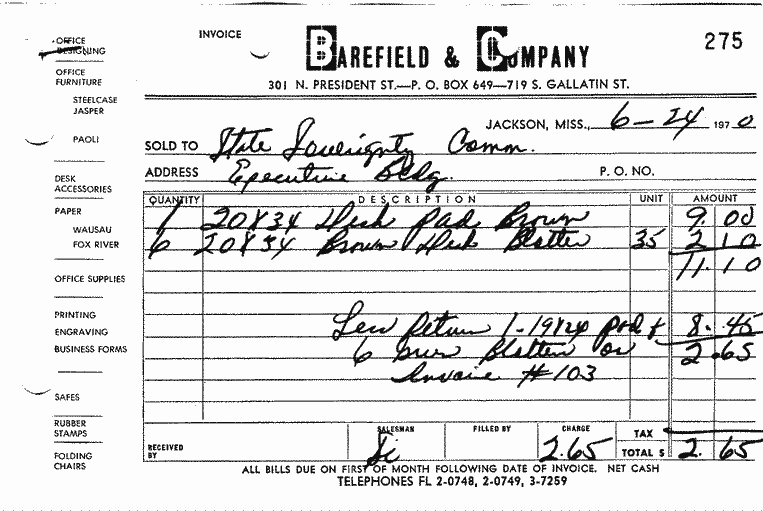 INVOICE
BAREFIELD & COMPANY
275
301 N. PRESIDENT ST.—P. O. BOX 649—719 S. GALLATIN ST.
OFFICE
DESIGNING
OFFICE
FURNITURE
STEELCASE
JASPER
PAOLI
DESK
ACCESSORIES
PAPER
WAUSAU
FOX RIVER
OFFICE SUPPLIES
PRINTING
ENGRAVING
BUSINESS FORMS
SAFES
RUBBER
STAMPS
FOLDING
CHAIRS
JACKSON, MISS., 6-24 1970
SOLD TO State Sovereignty Comm.
ADDRESS Executive Bldg. P. O. NO.
QUANTITY DESCRIPTION UNIT AMOUNT
1 20X34 Desk Pad Brown 9.00
6 20X34 Brown Desk Blotter 35 2 10
11.10
Less Return 1-19X24 pad & 8.45
6 Blotters on 2.65
Invoice #103
RECEIVED BY SALESMAN FILLED BY CHARGE 2.65 TAX
TOTAL $ 2.65
ALL BILLS DUE ON FIRST OF MONTH FOLLOWING DATE OF INVOICE. NET CASH
TELEPHONES FL 2-0748, 2-0749, 3-7259